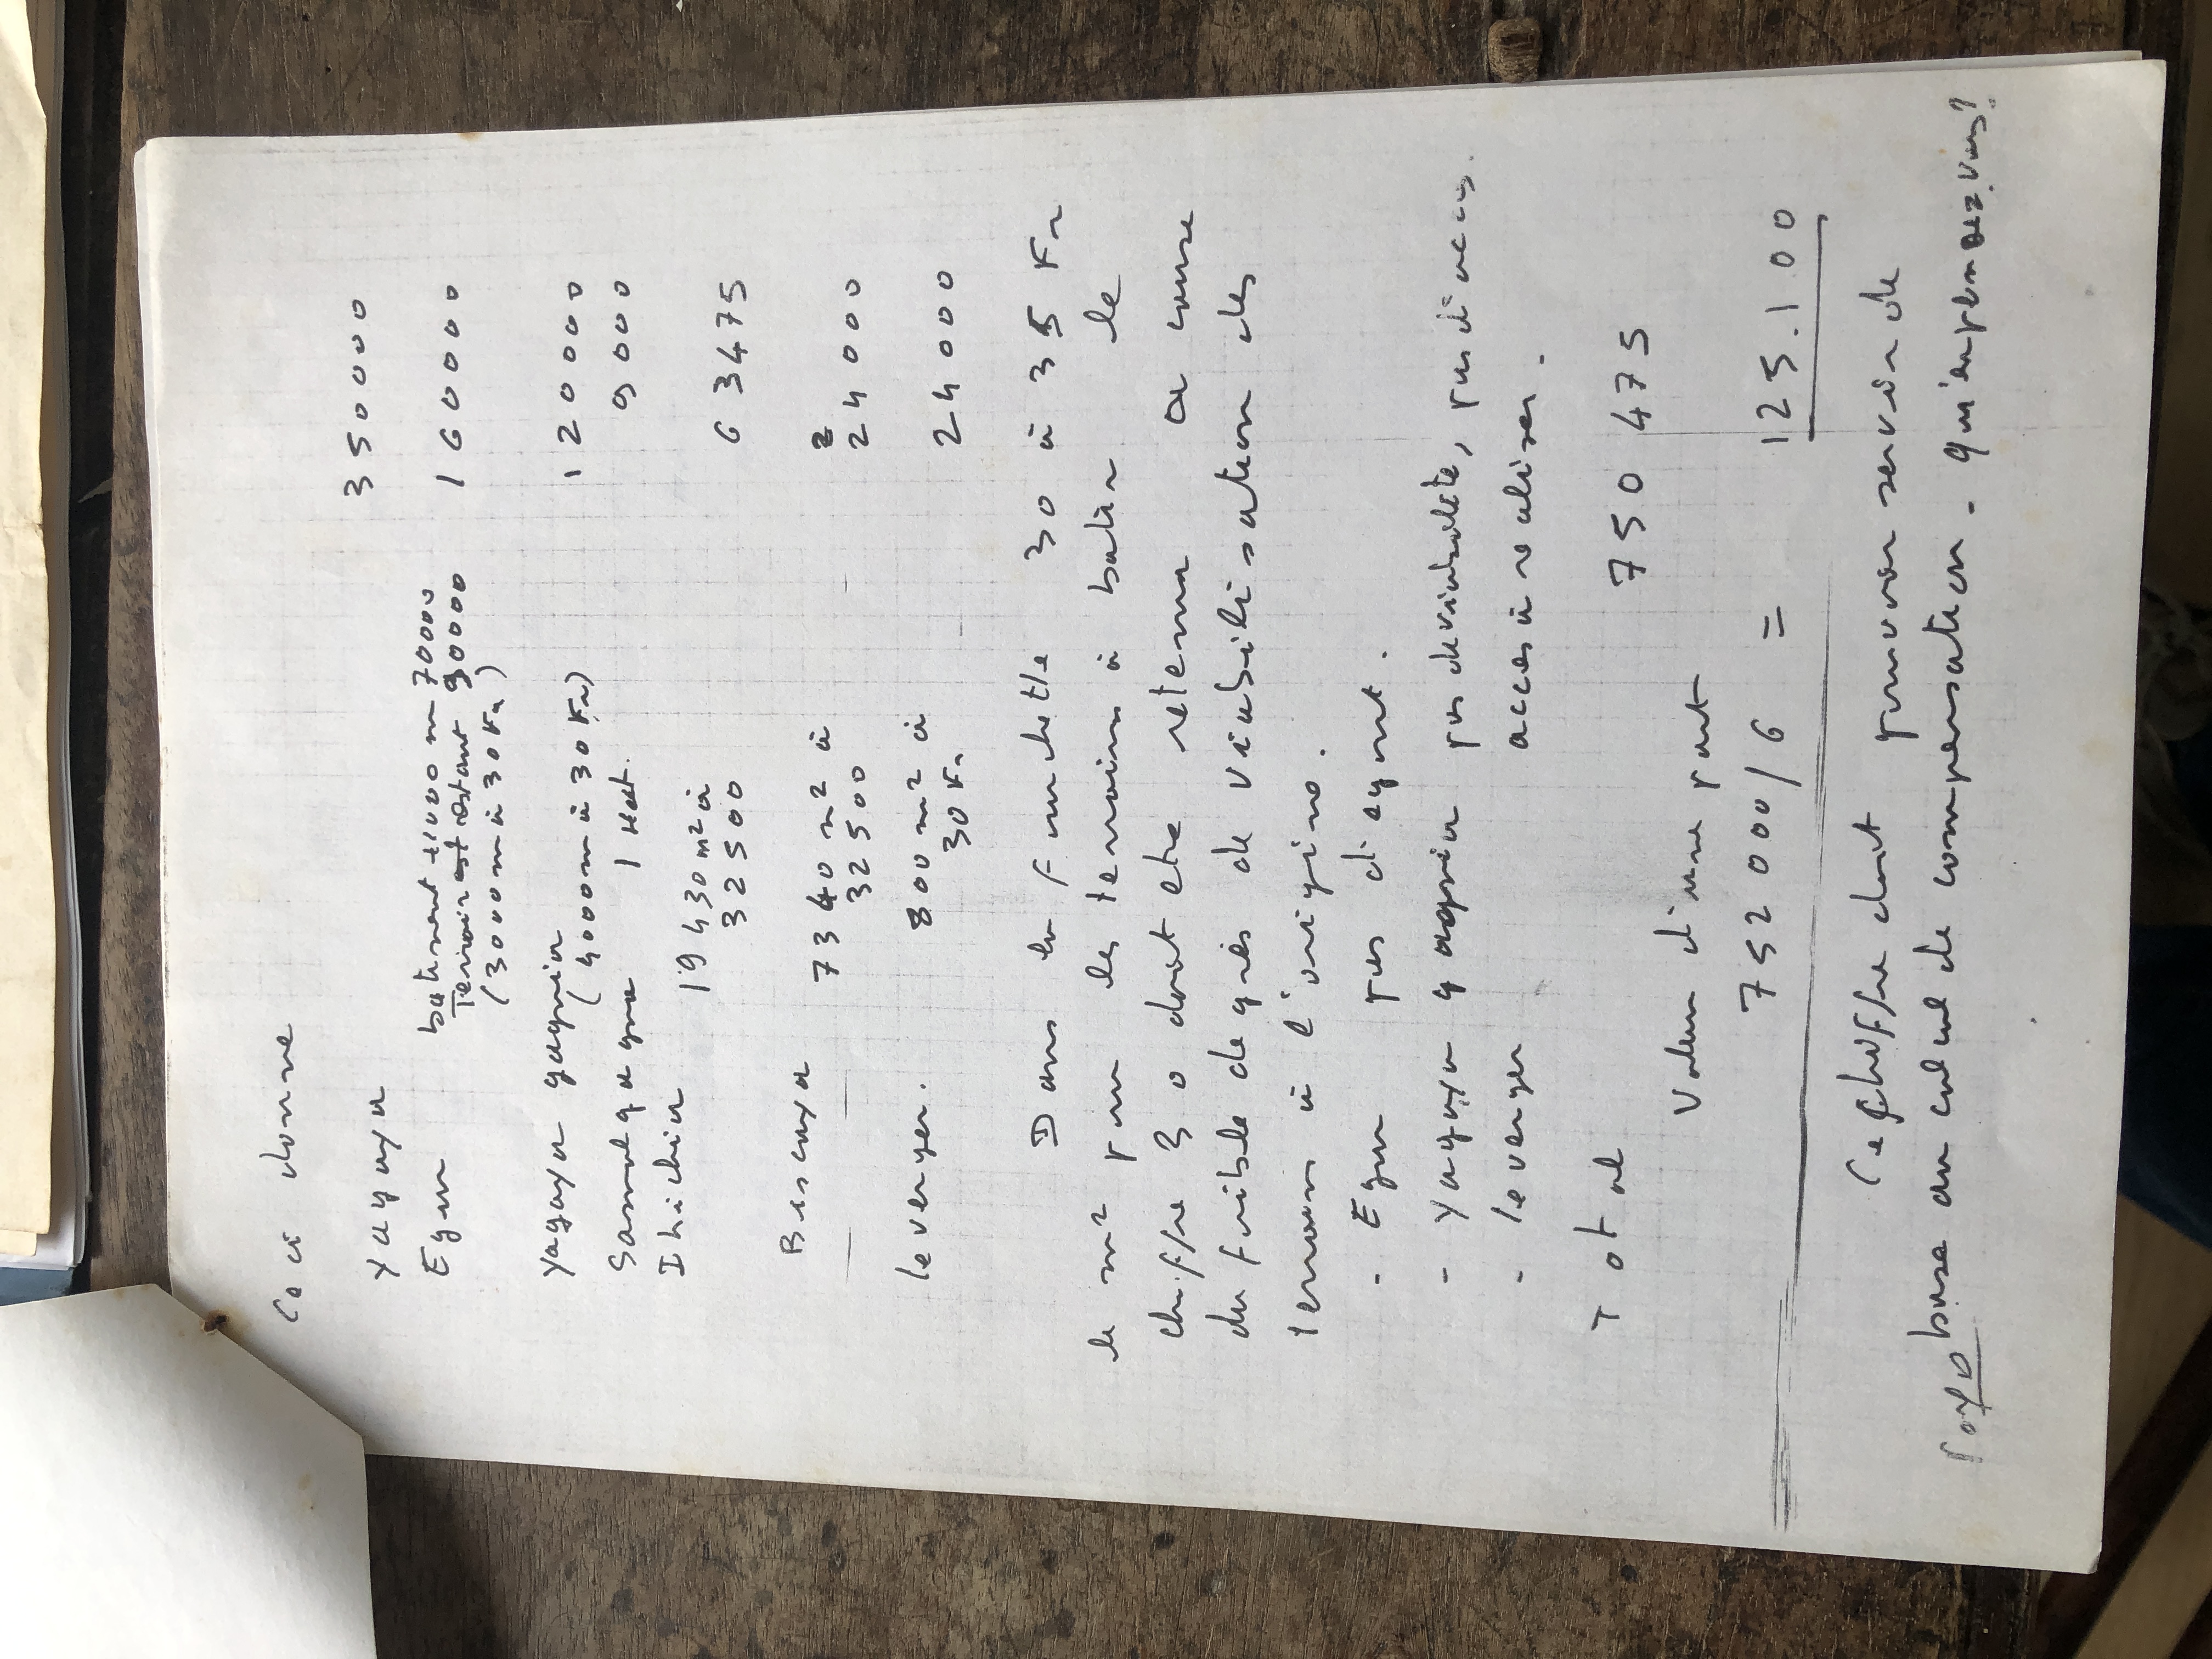 Ceci donne
Yagaya 350000
Egur batiment 1100 m 70000
Terrain est restant 90000 160000
(3000 m à 30 Fr)
Yagaya gagnia 120000
(4000 m à 30 Fr)
1 Hect. 9000
Ihichia 19430 m² à
32500 63475
Biscaya 7340 m² à 24000
32500
le verger. 800 m² à 24000
30 Fr
Dans la fourchette 30 à 35 Fr
le m² pour les terrains à batir le
chiffre 30 doit etre retenu a cause
du faible degrés de viabilisation des
terrains à l'origine.
- Egur pas d'egout.
- Yagaya gagnia pas de viabilité, pas d'acces.
- le verger acces à réaliser.
Total 750 475
Valeur d'une part
752 000/6 = 125.100
Ce chiffre doit pouvoir servir de
base au calcul de compensation - qu'en pensez vous?